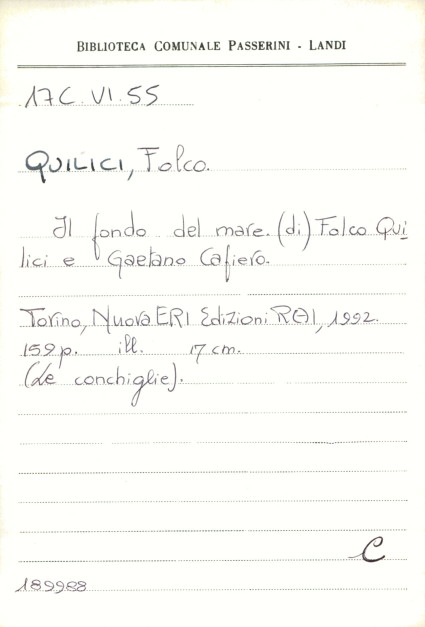 BIBLIOTECA COMUNALE PASSERINI - LANDI
17C.VI.55
QUILICI, Folco.
Il fondo del mare. (di) Folco Qui
lici e Gaetano Cafiero.
Torino, Nuova ERI Edizioni RAI, 1992.
159 p. ill. 17 cm.
(Le conchiglie).
C
189988